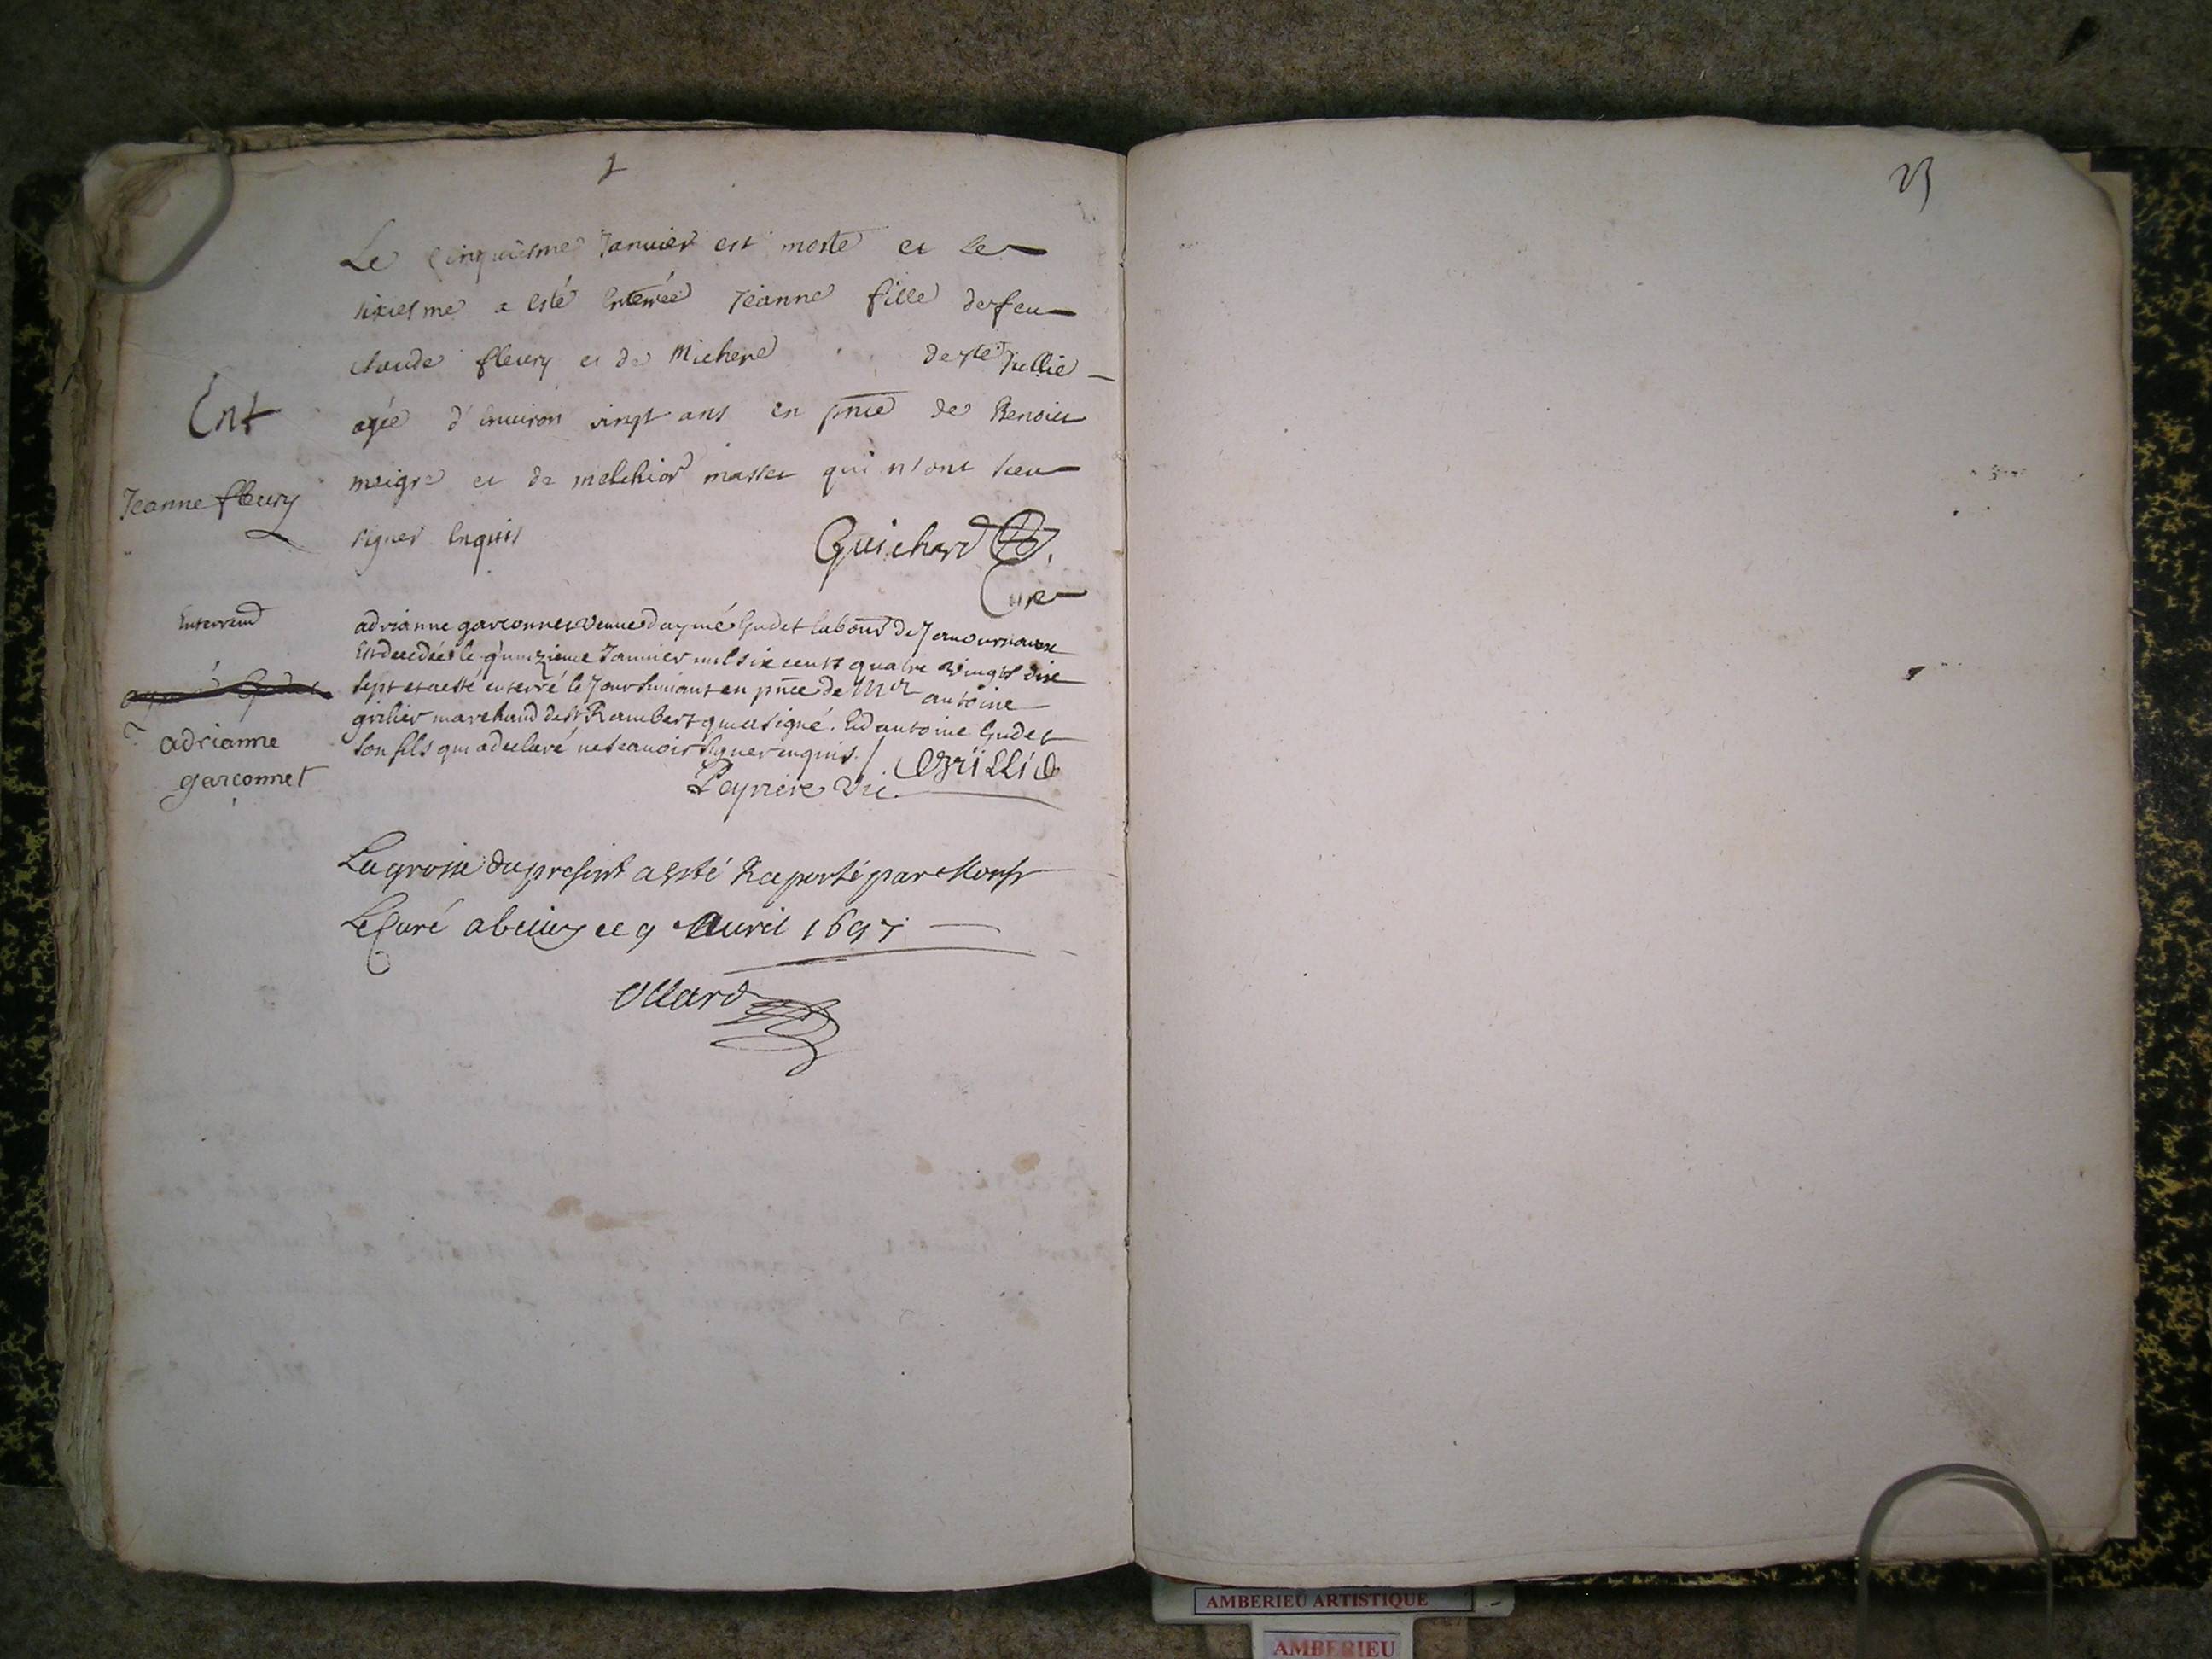 23
Le cinquiesme Januier est morte et le
sixiesme a esté enterrée Jeanne fille de feu
claude fleury et de Michere de Ste Jullie
Ent
agée d'enuiron vingt ans en pnce de Benoict
meigre et de melchior masset qui n'ont sceu
Jeanne fleury
signer enquis
Guichard
Cure
Enterremt
adrianne garconnet veuue d'aymé Gudet labour de
est decedée le quinzieme Januier mil six cents quatre vingts dix
sept et a esté enterré le Jour suiuant en pnce de Mr antoine
grilier marchand de St Rambert qui a signé. Et d'antoine Gudet
adrianne
garconnet
son fils qui a declaré ne scauoir signer enquis.
Grillie
Peyriere Vic.
La grosse du present a esté Raporté par Monsr
Le Curé ce 9 Auril 1697
Ollard
AMBERIEU ARTISTIQUE
AMBERIEU